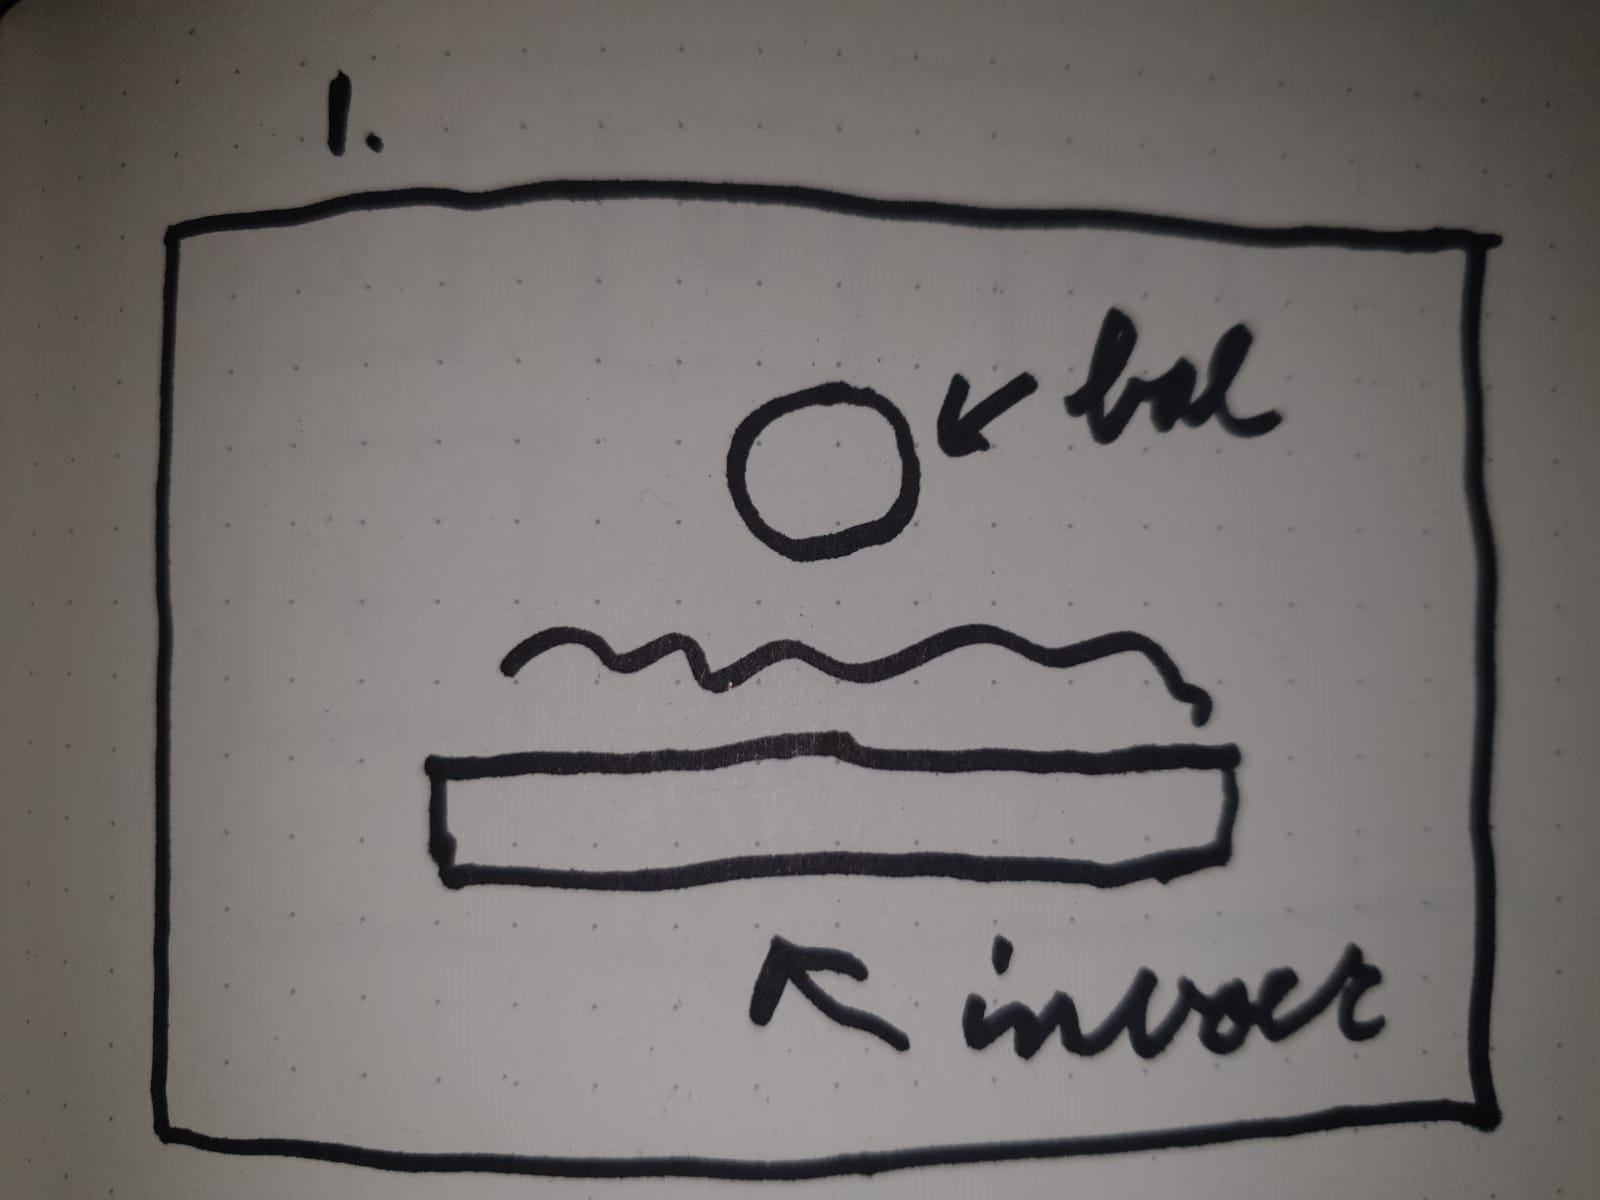 1.
bal
invoer